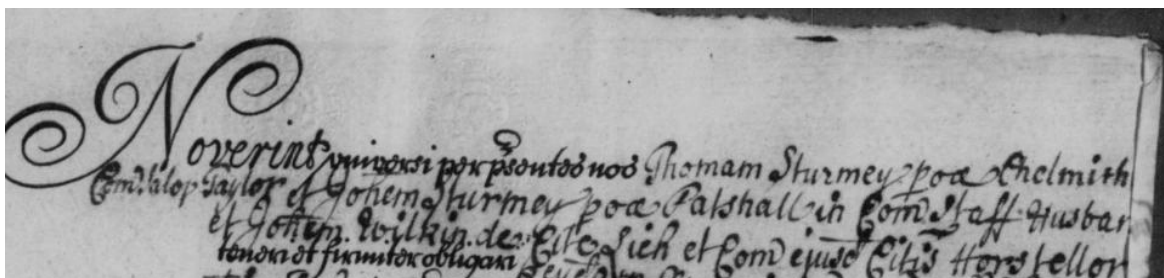 Noverint universi per p'sentes nos Thomam Sturmey p'oe Chelmith
Com Salop Taylor et Johem Sturmey p'oe Patshall in Com Staff Husban
et Johem Wilkin de Cite Lich et Com ejusd Citis Horstellor
teneri et firmiter obligari